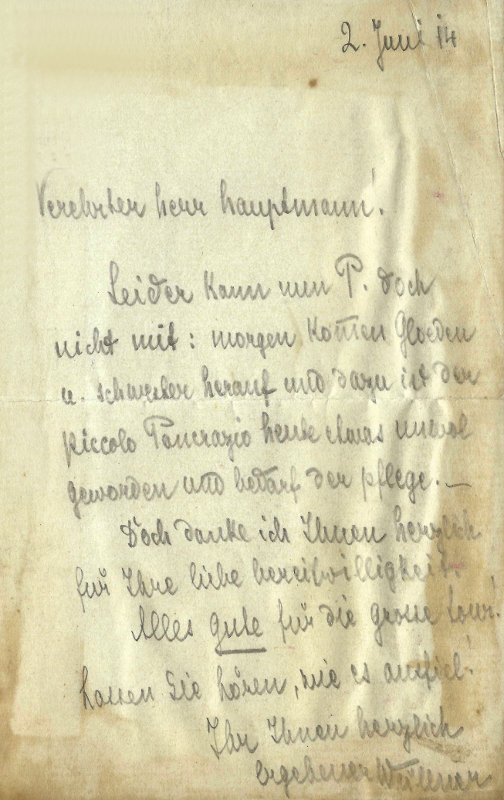 2. Juni 14
Verehrter herr hauptmann!
Leider kann nun P. doch
nicht mit: morgen kom̄en Gloeden
u. schwester herauf und dazu ist der
piccolo Pancrazio heute etwas unwol
geworden und bedarf der pflege. —
Doch danke ich Ihnen herzlich
für Ihre liebe bereitwilligkeit.
Alles gute für die grosse tour!
lassen Sie hören, wie es ausfiel!
Ihr Ihnen herzlich
ergebener